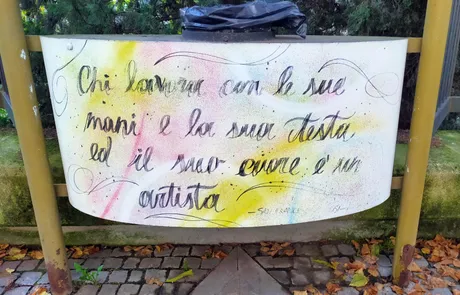 Chi lavora con le sue
mani e la sua testa
ed il suo cuore è un
artista